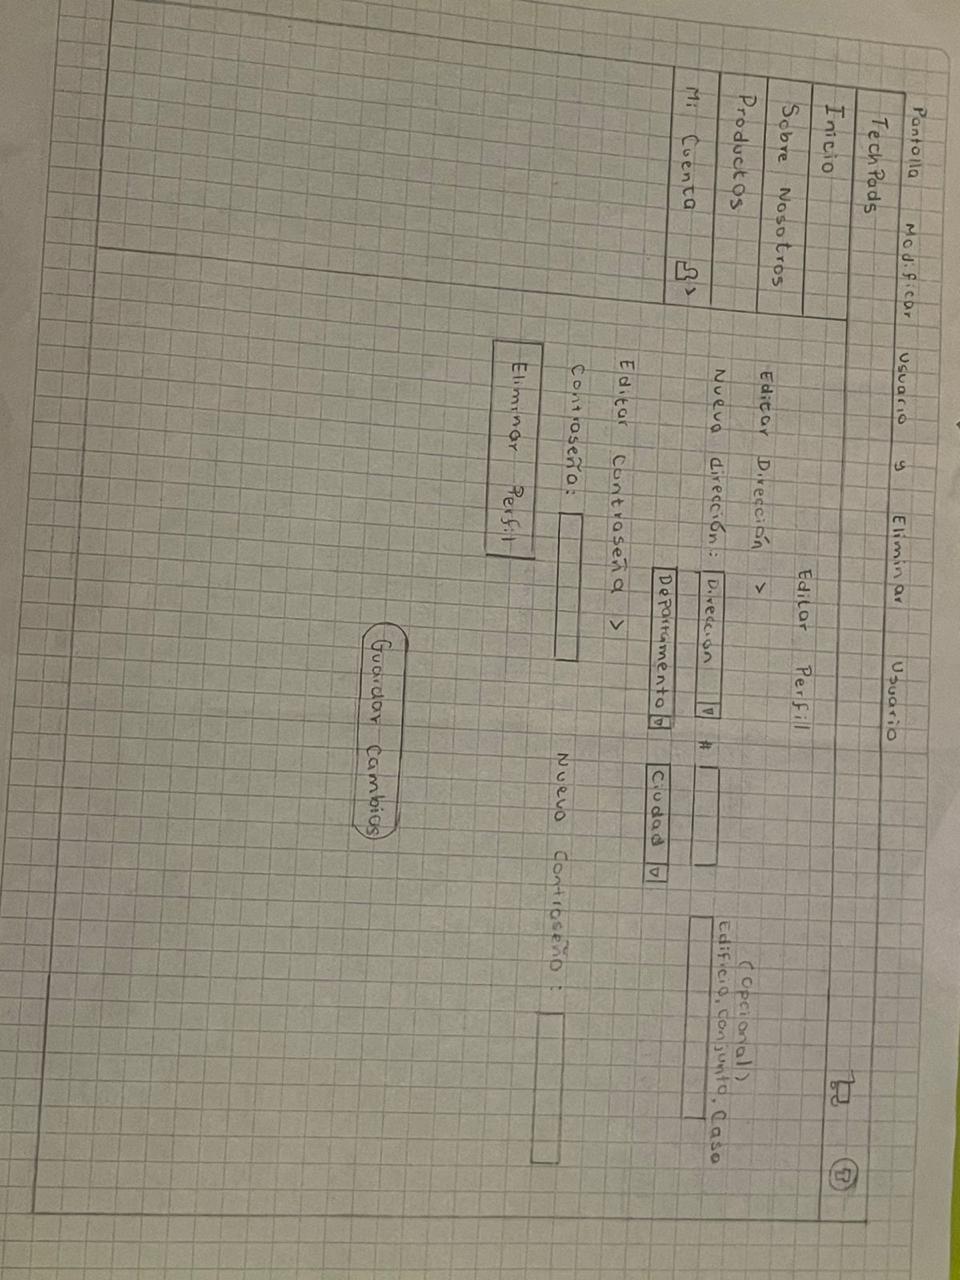 Pantalla Modificar Usuario y Eliminar Usuario
TechPads
Inicio
Sobre Nosotros
Productos
Mi Cuenta >
Editar Perfil
Editar Dirección >
(opcional)
Nueva dirección: Dirección # Edificio, conjunto, casa
Departamento Ciudad
Editar contraseña >
Contraseña: Nueva Contraseña:
Eliminar Perfil
Guardar cambios